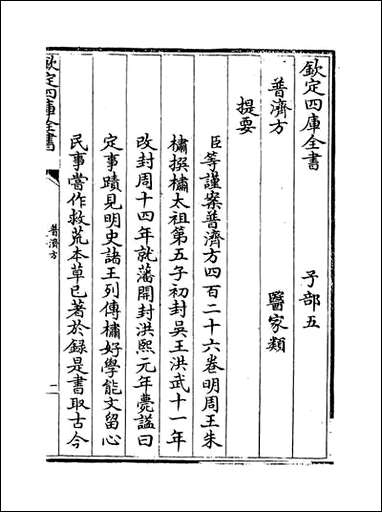 欽定四庫全書　子部五
普濟方　醫家類
提要
臣等謹案普濟方四百二十六卷明周王朱
橚撰橚太祖第五子初封吳王洪武十一年
改封周十四年就藩開封洪熙元年薨諡曰
定事蹟見明史諸王列傳橚好學能文留心
民事嘗作救荒本草已著於録是書取古今
欽定四庫全書
普濟方